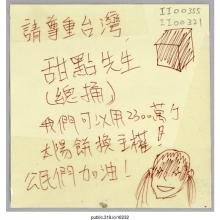 請尊重台灣
II00355
II00321
甜點先生
(總捅)
我們可以用2300萬个
太陽餅換主權!
公民們加油!
public.318.io/16232